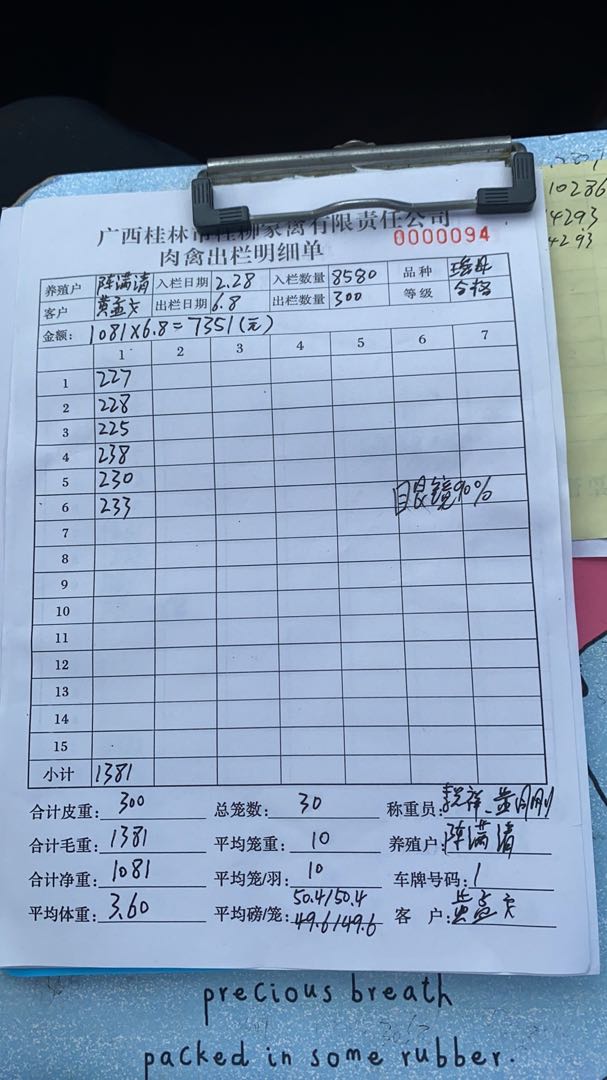 广西桂林市桂柳家禽有限责任公司
肉禽出栏明细单 0000094
养殖户 陈满清 入栏日期 2.28 入栏数量 8580 品种
客户 黄孟 出栏日期 6.8 出栏数量 300 等级 合格
金额: 1081×6.8=7351(元)
1 2 3 4 5 6 7
1 227
2 228
3 225
4 238
5 230
6 233 眼镜90%
7
8
9
10
11
12
13
14
15
小计 1381
合计皮重: 300 总笼数: 30 称重员:
合计毛重: 1381 平均笼重: 10 养殖户: 陈满清
合计净重: 1081 平均笼/羽: 10 车牌号码: 1
平均体重: 3.60 平均磅/笼: 50.4/50.4 49.6/49.6 客户: 黄孟
10286
4293
4293
precious breath
packed in some rubber.